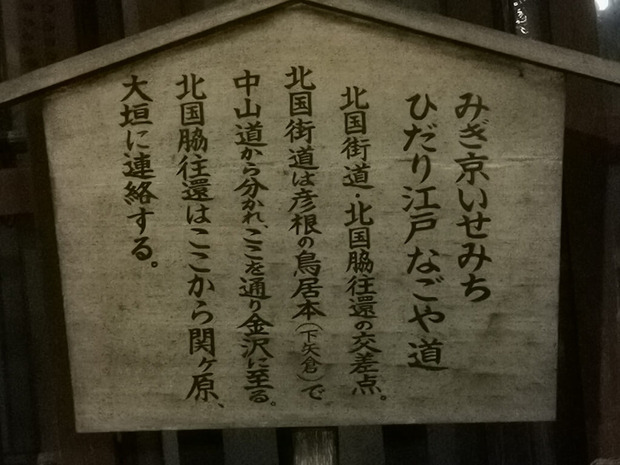 みぎ京いせみち
ひだり江戸なごや道
北国街道・北国脇往還の交差点。
北国街道は彦根の鳥居本(下矢倉)で
中山道から分かれ、ここを通り金沢に至る。
北国脇往還はここから関ヶ原、
大垣に連絡する。